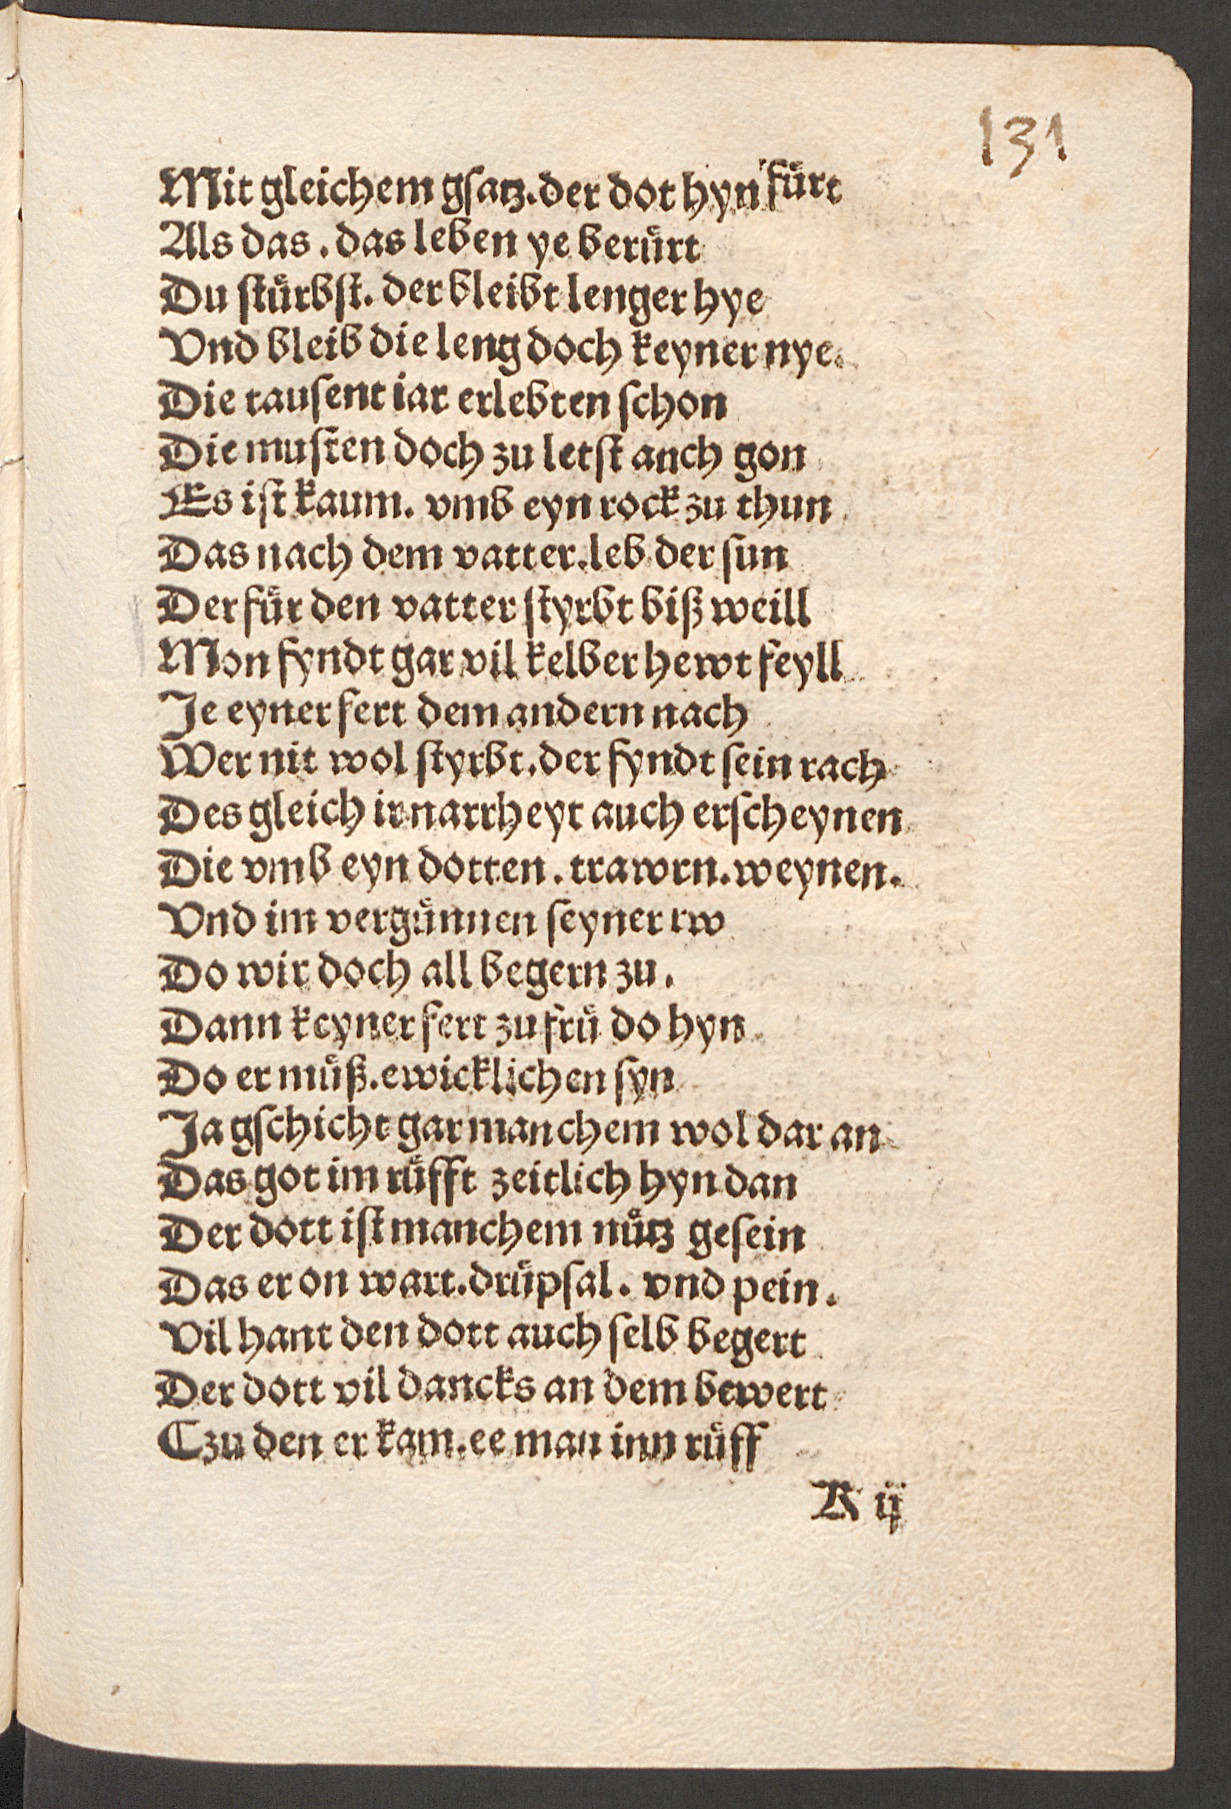 131
Mit gleichem gſatz. der dot hyn fuͤrt
Als das. das leben ye beruͤrt
Du ſtuͤrbſt. der bleibt lenger hye
Vnd bleib die leng doch keyner nye.
Die tauſent iar erlebten ſchon
Die muſten doch zu letſt anch gon
Es iſt kaum. vmb eyn rock zu thun
Das nach dem vatter. leb der ſun
Der fuͤr den vatter ſtyrbt biß weill
Mon fyndt gar vil kelber hewt feyll
Je eyner fert dem andern nach
Wer nit wol ſtyrbt. der fyndt ſein rach
Des gleich ir narrheyt auch erſcheynen
Die vmb eyn dotten. trawrn. weynen.
Vnd im verguͤnnen ſeyner rw
Do wir doch all begern zu.
Dann keyner fert zu fruͤ do hyn
Do er muͤß. ewicklichen ſyn
Ja gſchicht gar manchem wol dar an
Das got im ruͤfft zeitlich hyn dan
Der dott iſt manchem nuͤtz geſein
Das er on wart. druͤpſal. vnd pein.
Vil hant den dott auch ſelb begert
Der dott vil dancks an dem bewert
Czu den er kam. ee man inn ruͤff
R ij